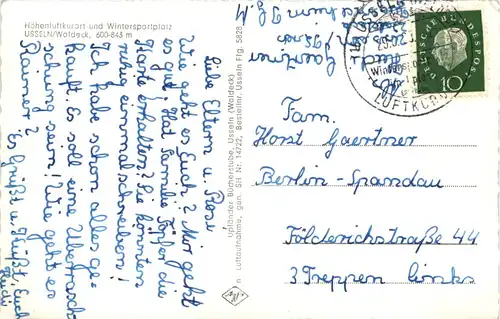 Höhenluftkurort und Wintersportplatz
USSELN/Waldeck, 600-845 m
Liebe Eltern u. Rosi!
Wie geht es Euch? Mir geht
es gut! Hat Familie Töpfer die
Karte erhalten? Sie könnten
ruhig einmal schreiben!
Ich habe schon alles ge-
kauft. Es soll eine Überrasch
ung sein! Wie geht es
Rainer?
Es Grüßt u. Küßt, Euch
Heidi
Upländer Bücherstube, Usseln (Waldeck)
n Luftaufnahme, gen. Sn Nr. 14722, Bestellnr. Usseln Flg. 5828
DEUTSCHE BUNDESPOST
10
Winter
LUFTKUR
Fam.
Horst Gaertner
Berlin-Spandau
Földerichstraße 44
3 Treppen links